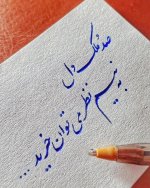 صد ملک دل
به نیم نظر می توان خرید ...